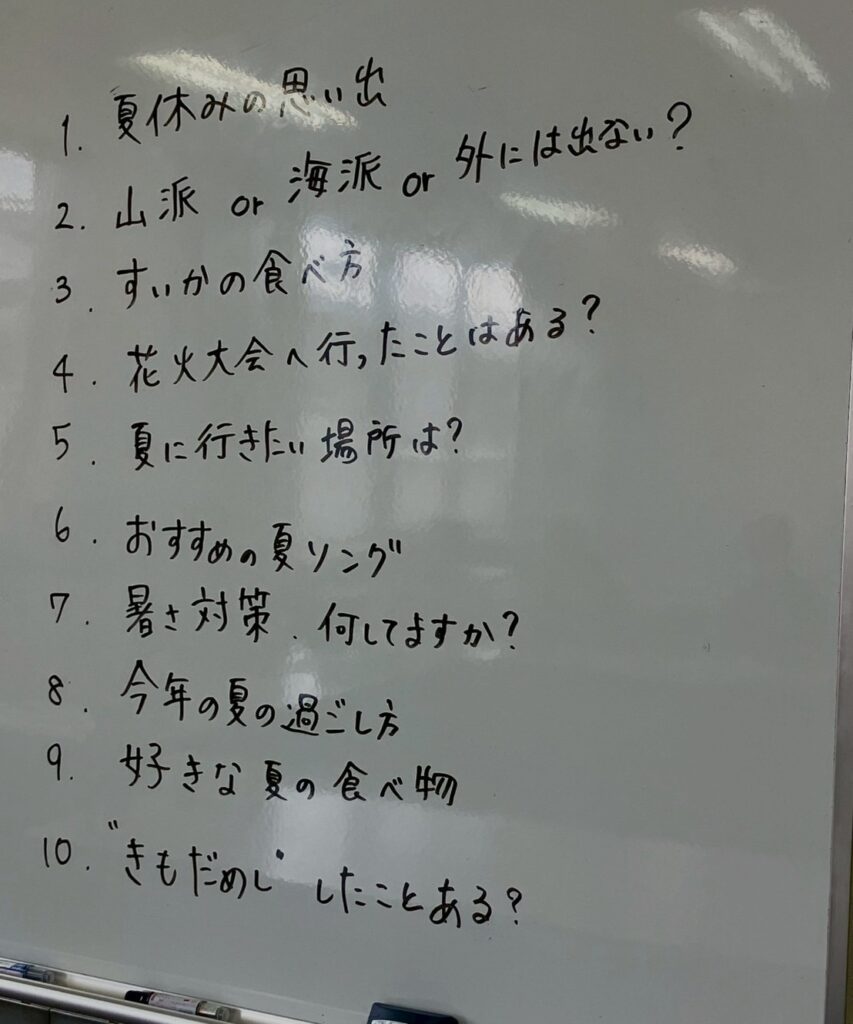 1. 夏休みの思い出
2. 山派 or 海派 or 外には出ない?
3. すいかの食べ方
4. 花火大会へ行ったことはある?
5. 夏に行きたい場所は?
6. おすすめの夏ソング
7. 暑さ対策、何してますか?
8. 今年の夏の過ごし方
9. 好きな夏の食べ物
10. "きもだめし" したことある?